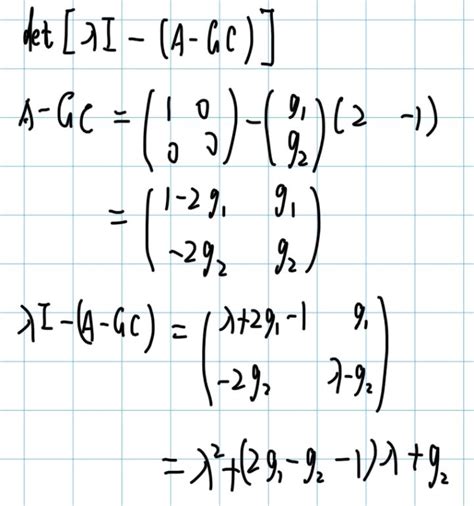 det[λI-(A-GC)]
A-GC = (1 0 0 0) - (g₁ g₂)(2 -1)
= (1-2g₁ g₁ -2g₂ g₂)
λI-(A-GC) = (λ+2g₁-1 g₁ -2g₂ λ-g₂)
= λ²+(2g₁-g₂-1)λ+g₂